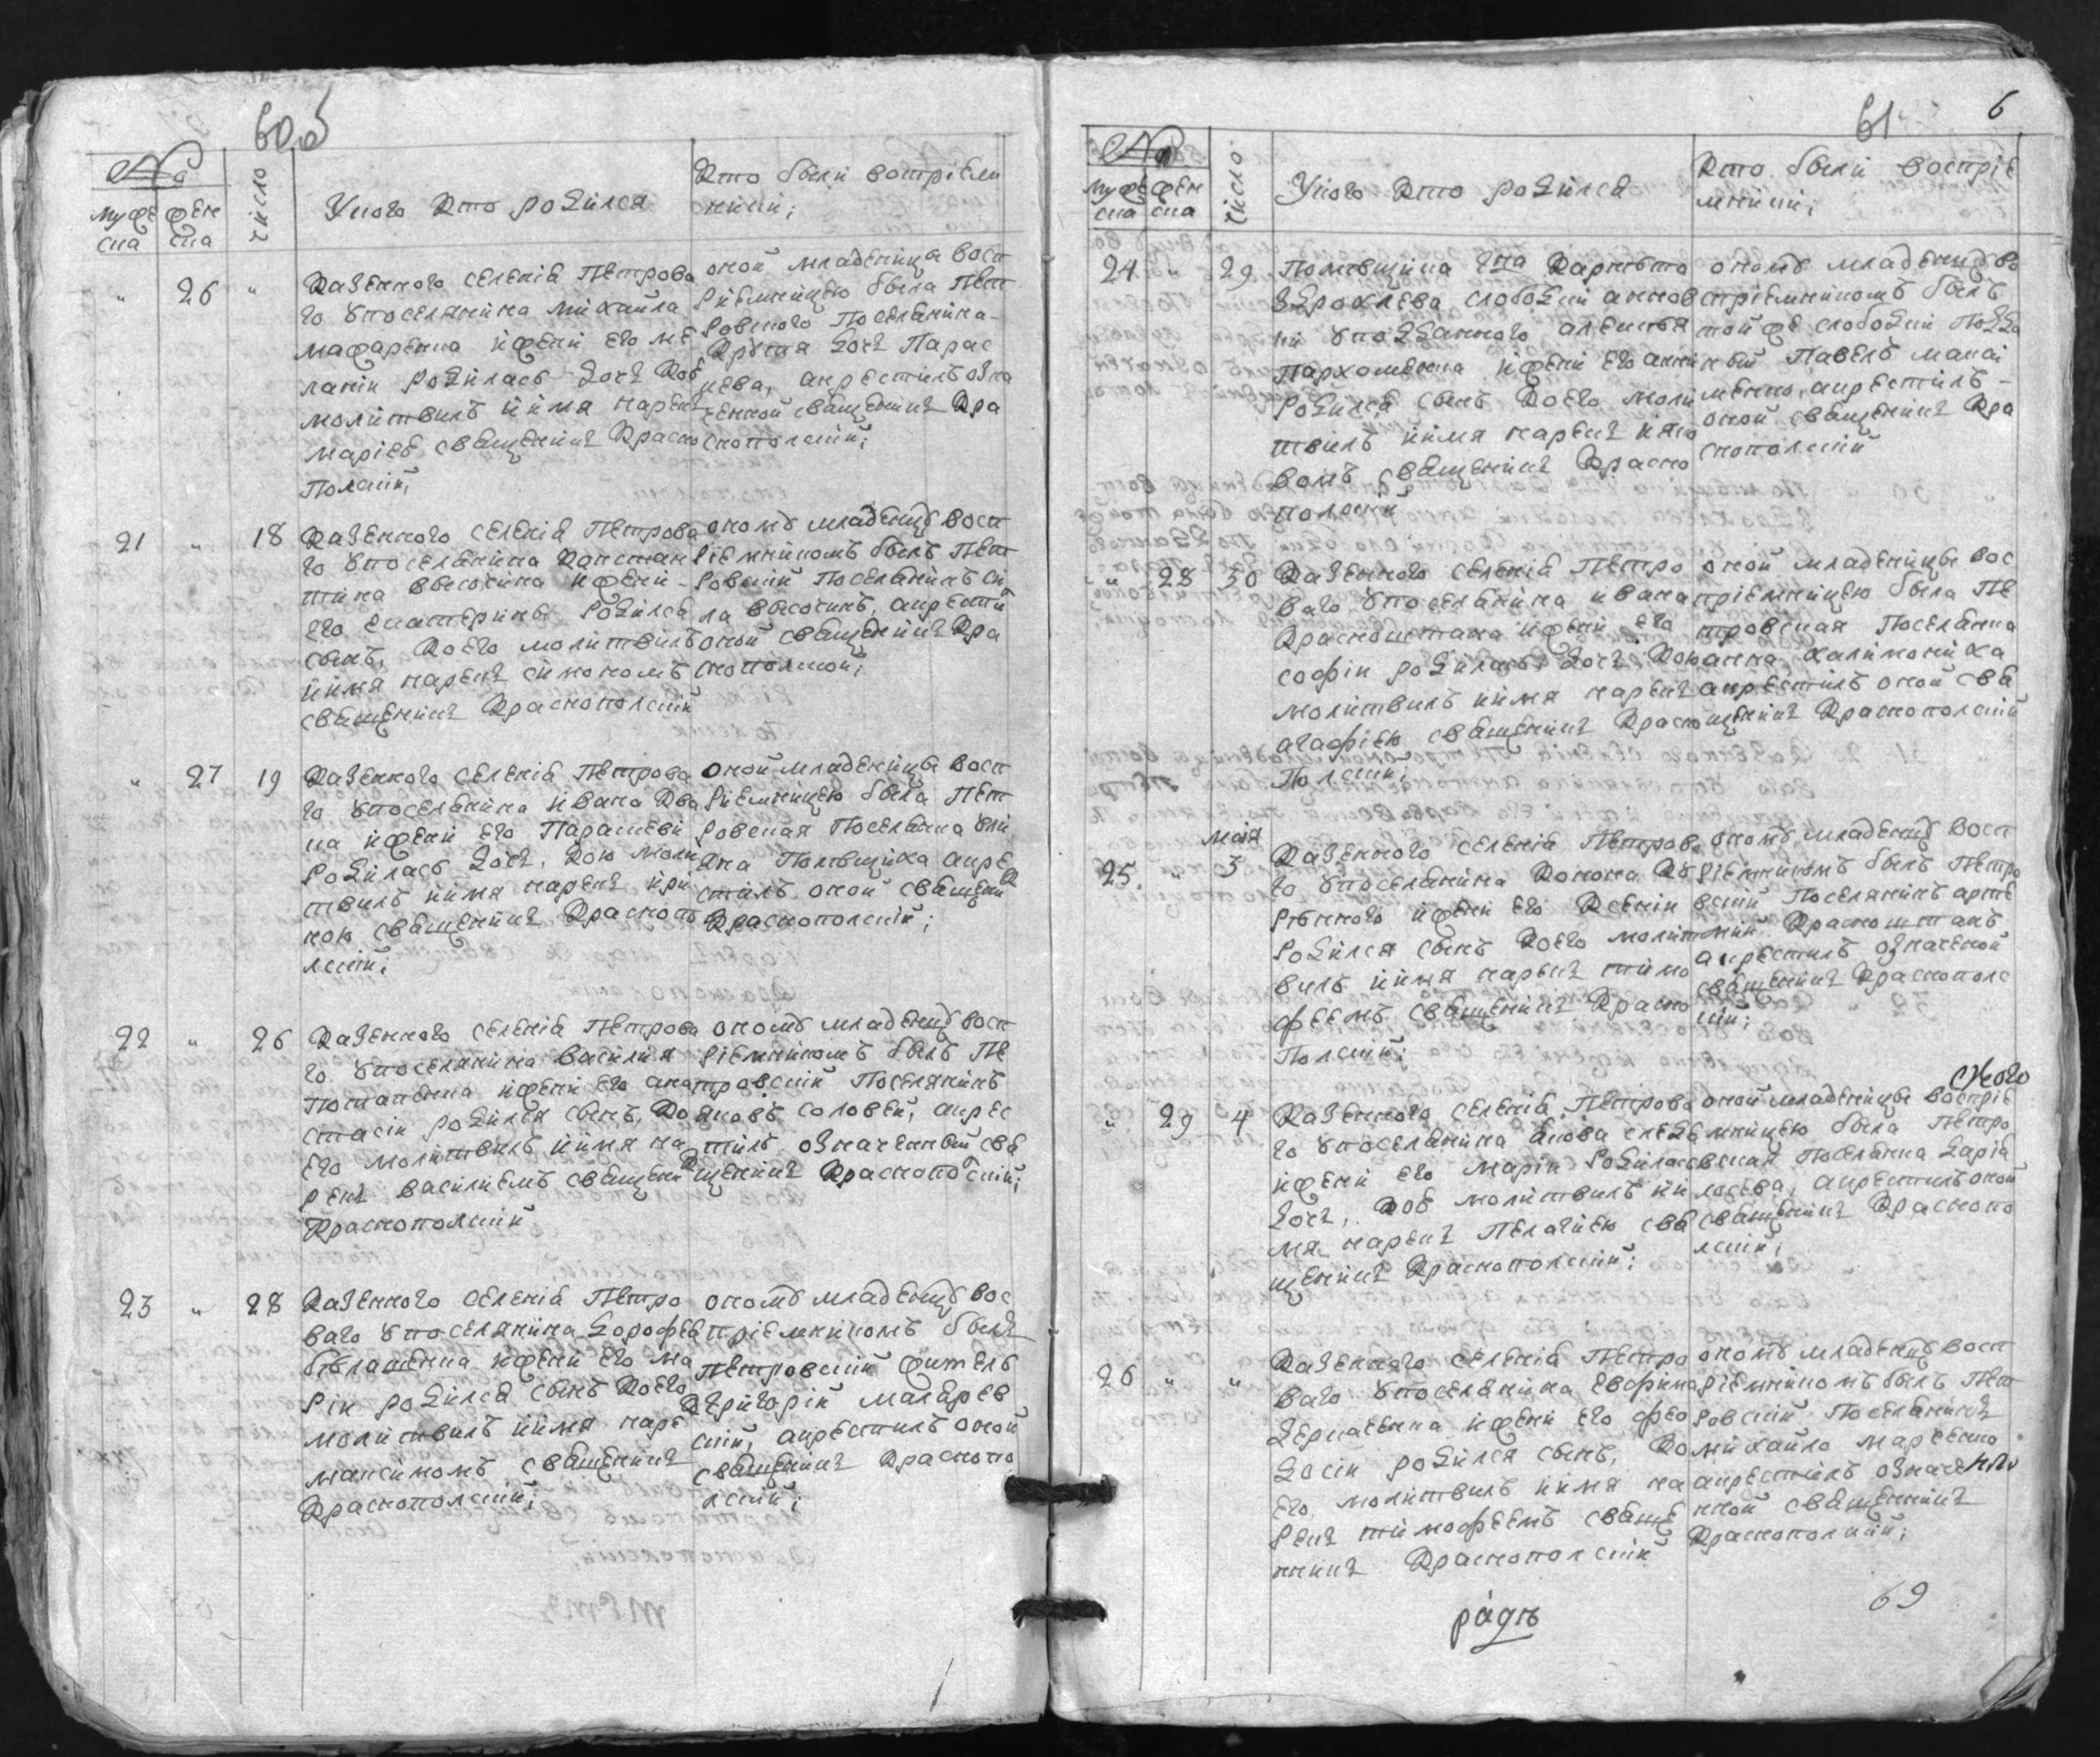 60об
№
муже
ска
жен
ска
число
У кого кто родился
Кто были восприем
ники;
„ 26 „
Казенного селения Петрова
го у поселянина Михайла
Макаренка и жены его ме
лании родилась дочь коя
молитвилъ и имя нарекъ
мариею священникъ Красно
Полский,
оной младенице восп
риемницею была Пет
ровского Поселянина
дочь Парас
кева, а крестилъ озна
ченной священникъ Кра
снополский;
21 „ 18
Казенного селения Петрова
го у поселянина Констан
тина Высочина и жены
его екатерины родился
сынъ, коего молитвилъ
и имя нарекъ симономъ
священникъ Краснополский
оному младенцу восп
риемникомъ былъ Пет
ровский Поселянинъ
Высочинъ, а крестил
оной священникъ Кра
снополской;
„ 27 19
Казенного селения Петрова
го у поселянина Ивана Ква
ка и жены его Параскеви
родилась дочь, кою моли
твилъ и имя нарекъ ири
ною священникъ Краснопо
лский;
оной младенице восп
риемницею была Пет
ровская Поселянка Ули
яна Помѣщика а кре
стилъ оной священник
Краснополский;
22 „ 26
Казенного селения Петрова
го у поселянина Василия
Потапенка и жены его ана
стасии родился сынъ, ко
его молитвилъ и имя на
рекъ василиемъ священник
Краснополский
оному младенцу восп
риемникомъ былъ Пе
тровский Поселянинъ
яковъ соловей, а крес
тилъ означенный свя
щенникъ Краснополский;
23 „ 28
Казенного селения Петро
ваго у поселянина дорофея
бѣлашенка и жены его ма
рии родился сынъ коего
молитвилъ и имя наре
максимомъ священникъ
Краснополский;
оному младенцу вос
приемникомъ былъ
Петровский житель
Григорий маляров
ский, а крестилъ оной
священникъ Краснопо
лский;
61
6
№
муже
ска
жен
ска
число
У кого кто родился
Кто были восприе
мники;
24 „ 29
Помѣщика гна
слободки аннов
ки у подданного алексѣя
Пархоменка и жены его анны
родился сынъ коего моли
твилъ и имя нарекъ яко
вомъ священникъ Красно
полский
оному младенцу во
сприемникомъ былъ
той же слободки Подда
ный Павелъ манай
менко, а крестилъ
оной священникъ Кра
снополский
„ 28 30
Казенного селения Петро
ваго у поселянина ивана
Красноштана и жены его
софии родилась дочь, кою
молитвилъ и имя нарекъ
агафиею священникъ Красно
Полский;
оной младенице вос
приемницею была Пе
тровская Поселянка
анна халимониха
а крестилъ оной свя
щенникъ Краснополский
маия
25 „ 3
Казенного селения Петрова
го у поселянина Конона
и жены его Ксении
родился сынъ коего молит
вилъ и имя нарекъ тимо
феемъ священникъ Красно
Полский;
оному младенцу восп
риемникомъ былъ Петро
вский Поселянинъ арте
мий Красноштанъ
а крестилъ означеной
священникъ Краснополс
кий;
„ 29 4
Казенного селения Петрова
го у поселянина якова
и жены его марии родилась
дочь, коя молитвилъ и и
мя нарекъ Пелагиею свя
щенникъ Краснополский;
оной младенице восприе
мницею была Петро
вская Поселянка дария
а крестилъ оной
священникъ Краснопо
лский;
26 „ „
Казенного селения Петро
ваго у поселянина Евфима
Деркаченка и жены его фео
досии родился сынъ, ко
его молитвилъ и имя на
рекъ тимофеемъ свяще
нникъ Краснополский
оному младенцу восп
риемникомъ былъ Пет
ровский Поселянинъ
михайло марченко
а крестилъ означе
нной священникъ
Краснополский;
69